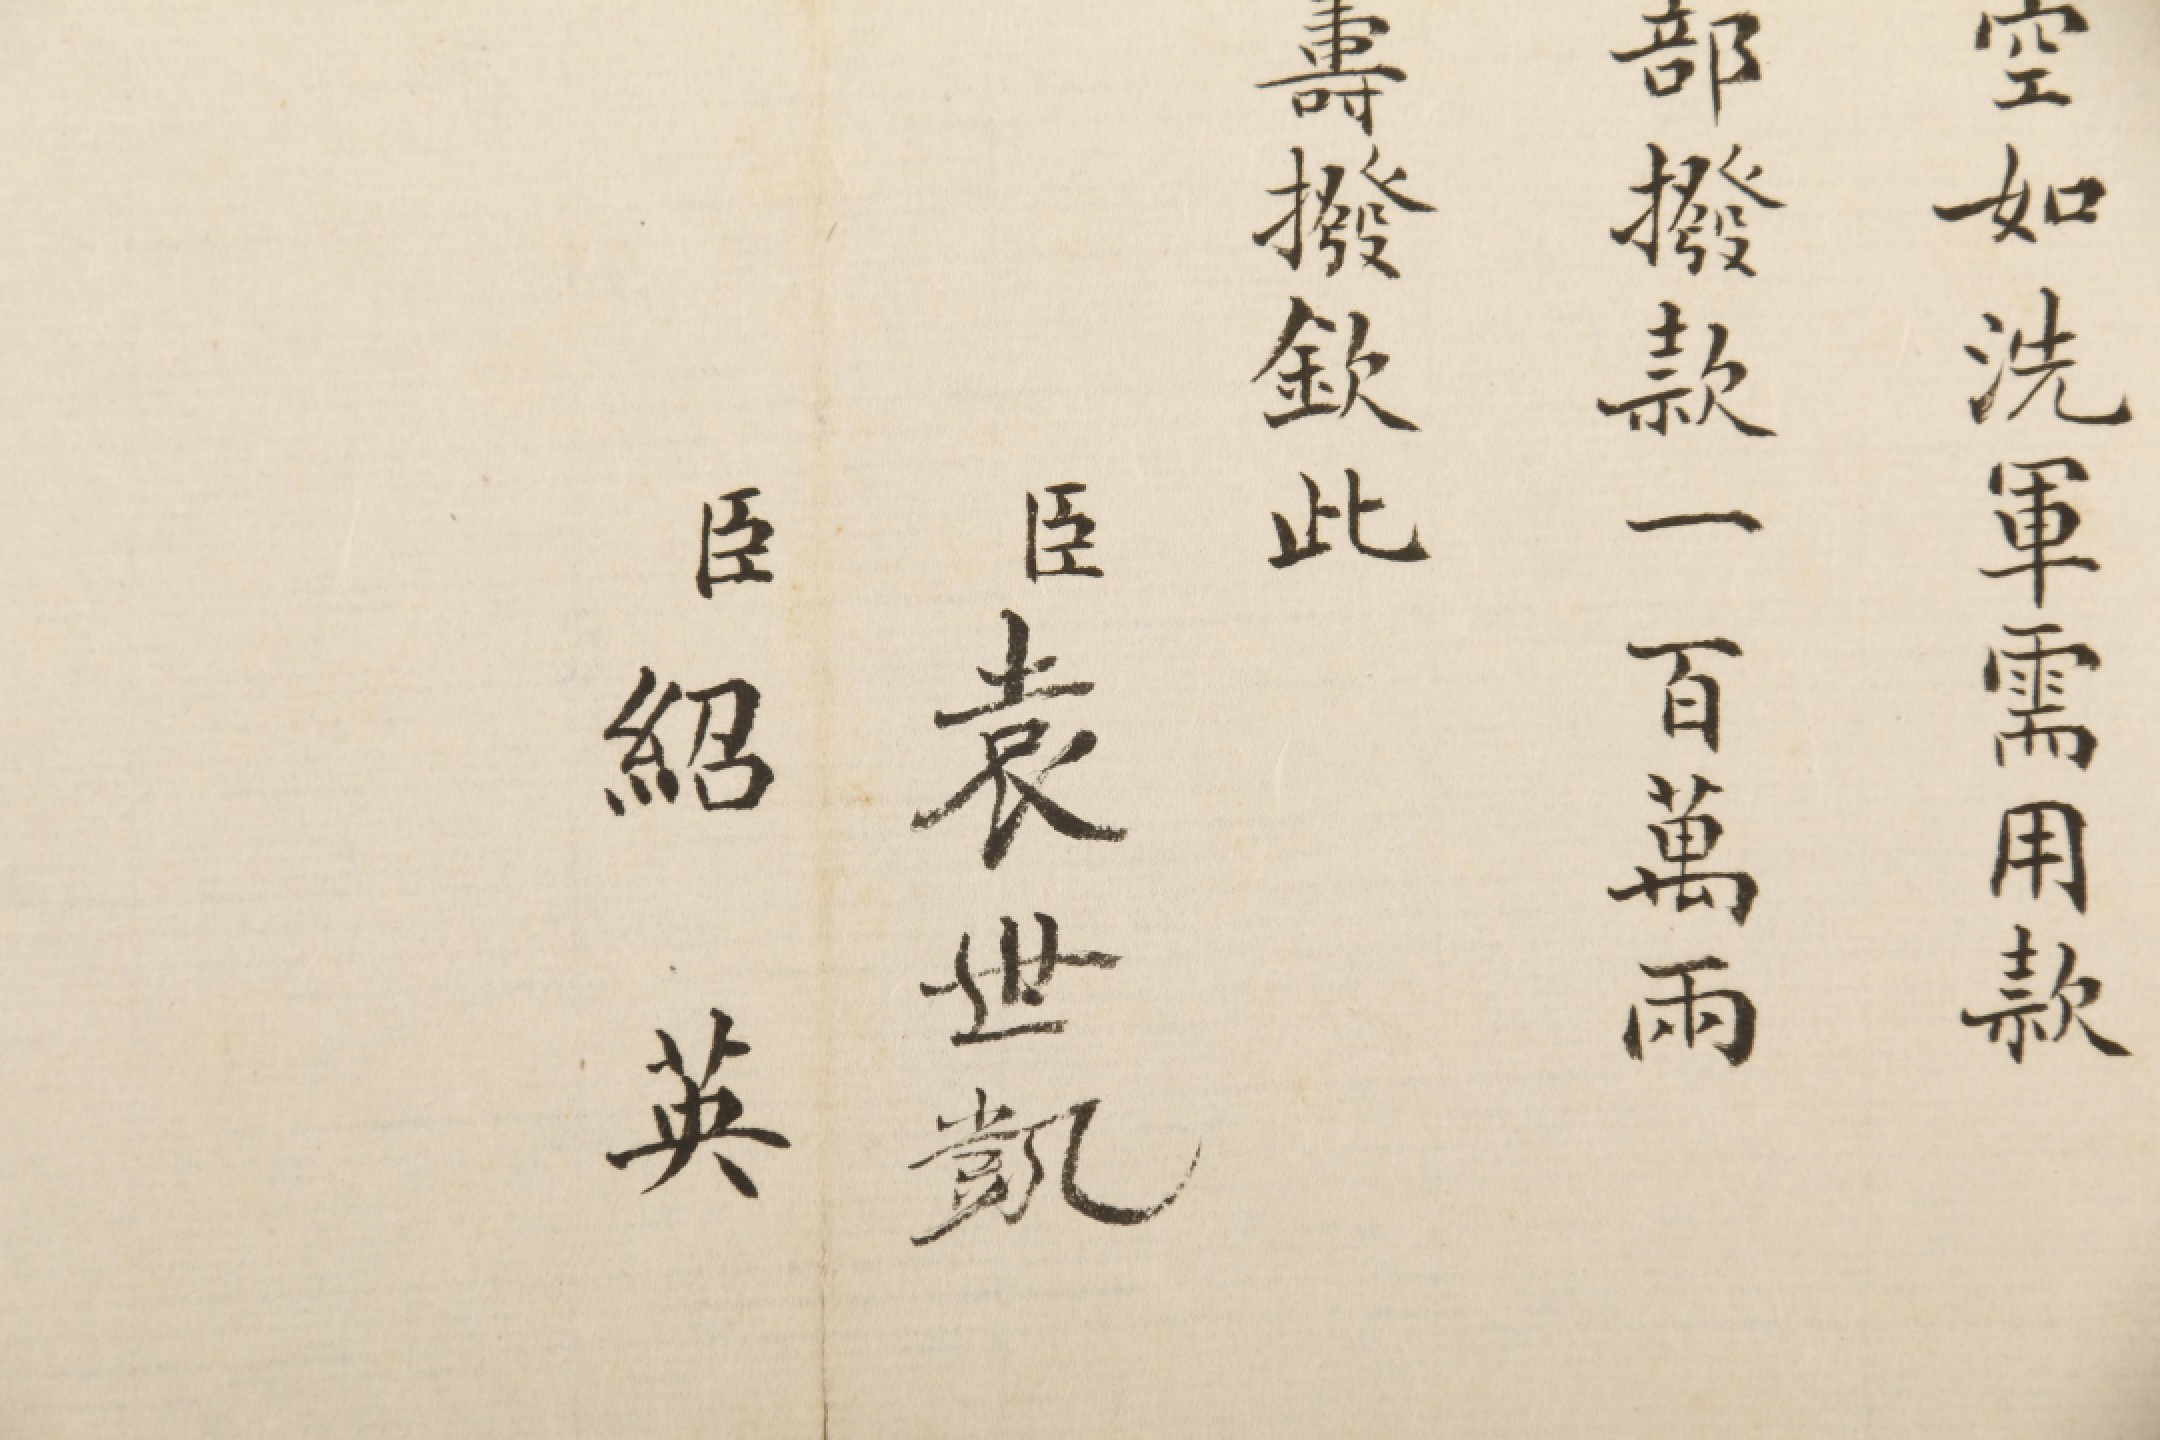 空如洗軍需用款
部撥款一百萬兩
壽撥欽此
臣袁世凱
臣紹英